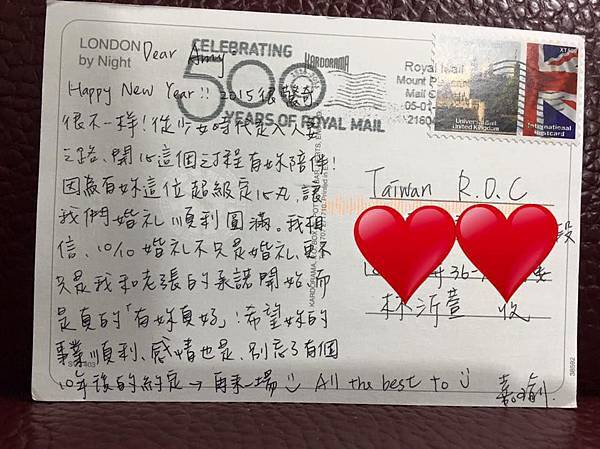 LONDON
by Night
CELEBRATING
500
YEARS OF ROYAL MAIL
KARDORAMA
Royal Mail
Mount
Mail
05-01
Universal Mail
United Kingdom
International
Postcard
Dear Amy
Happy New Year!! 2015很驚奇
很不一樣!從少女時代走入人妻
之路、開心這個過程有妳陪伴!
因為有妳這位超級定心丸,讓
我們婚禮順利圓滿。我相
信、10/10 婚礼不只是婚礼、更不
只是我和老張的承諾開始、而
是真的「有妳真好」!希望妳的
事業順利、感情也是、別忘了有個
10年後的約定→再來一場 All the best to U
Taiwan R.O.C
段
林沂萱 收